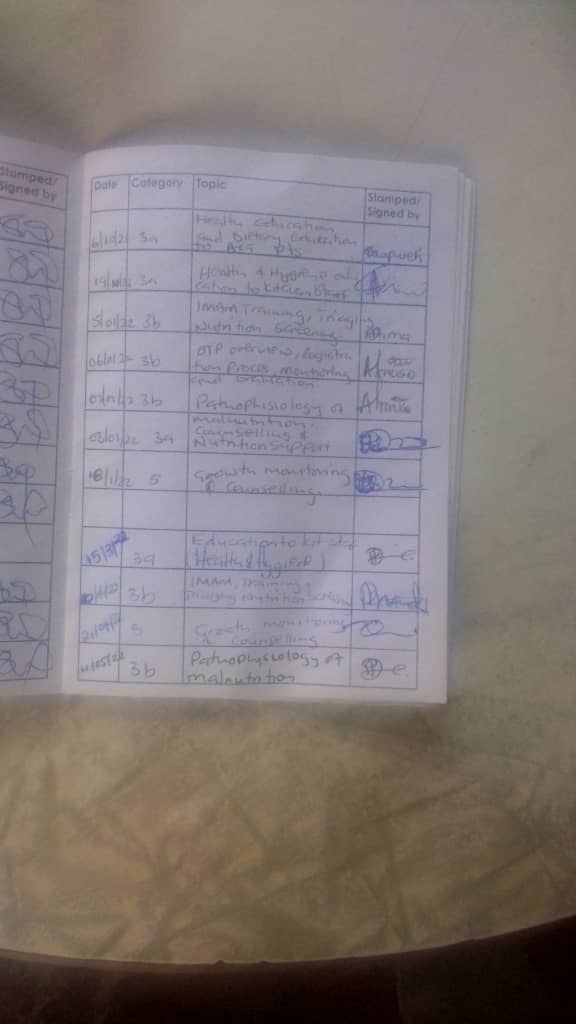 Stamped/
Signed by
Date Category Topic Stamped/
Signed by
3a Health Education
and Dietary Education
to ART pts
3a Health & Hygiene edu
cation to kitchen staff
5/01/22 3b IMAM Training, Triaging
Nutrition Screening
06/01/22 3b OTP overview, Registra
tion process, monitoring
and evaluation
07/01/22 3b Pathophisiology of
malnutrition.
03/01/22 3a Counselling &
Nutrition Support
18/1/22 5 Growth monitoring
& Counselling.
15/3/22 3a Education to kit staff
(Health & Hygiene)
3b IMAM, Training &
5 Growth monitoring
& Counselling
11/05/22 3b Pathophysiology of
malnutrition